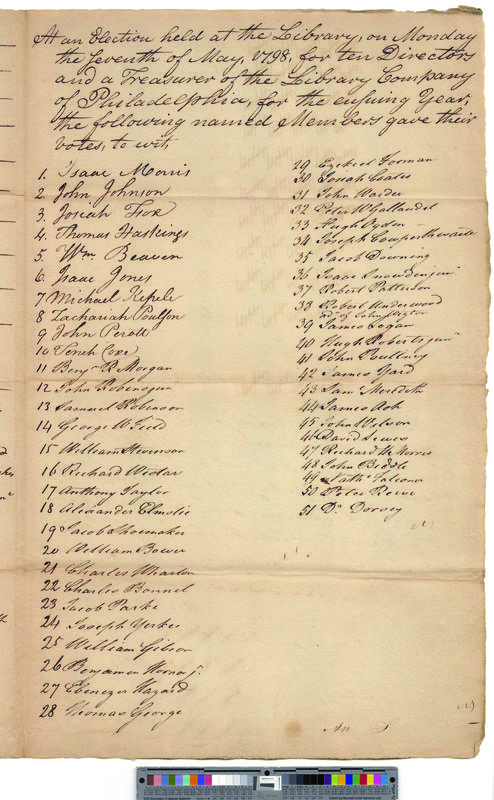 At an Election held at the Library, on Monday
the seventh of May, 1798, for ten Directors
and a Treasurer of the Library Company
of Philadelphia, for the ensuing Year,
the following named Members gave their
votes, to wit,
1. Isaac Morris
2. John Johnson
3. Josiah Fox
4. Thomas Haskings
5. Wm. Beaven
6. Isaac Jones
7 Michael Keple
8 Zachariah Poulson
9 John Perott
10 Tench Coxe
11 Benjn. R. Morgan
12 John Robens junr
13 Samuel Robinson
14 George W Field
15 William Stevenson
16 Richard Wistar
17 Anthony Taylor
18 Alexander Elmslie
19 Jacob Shoemaker
20 William Bower
21 Charles Wharton
22 Charles Bonnel
23 Jacob Parke
24 Joseph Yerkes
25 William Gibson
26 Benjamen Hornor jr.
27 Ebenezer Hazard
28 Thomas George
29 Ezekiel Forman
30 Josiah Coates
31 John Warder
32 Peter W Gallaudet
33 Hugh Ogden
34 Joseph Cowperthwaite
35 Jacob Downing
36 Isaac Snowden junr
37 Robert Patterson
38 Robert Underwood
of John
39 James Logan
40 Hugh Roberts junr
41 John Poultney
42 James Yard
43 Saml Meredith
44 James Ash
45 John Wilson
46 David Lewis
47 Richard H Morris
48 John Biddle
49 Nathl Falconer
50 Peter Reeve
51 Dr. Dorsey